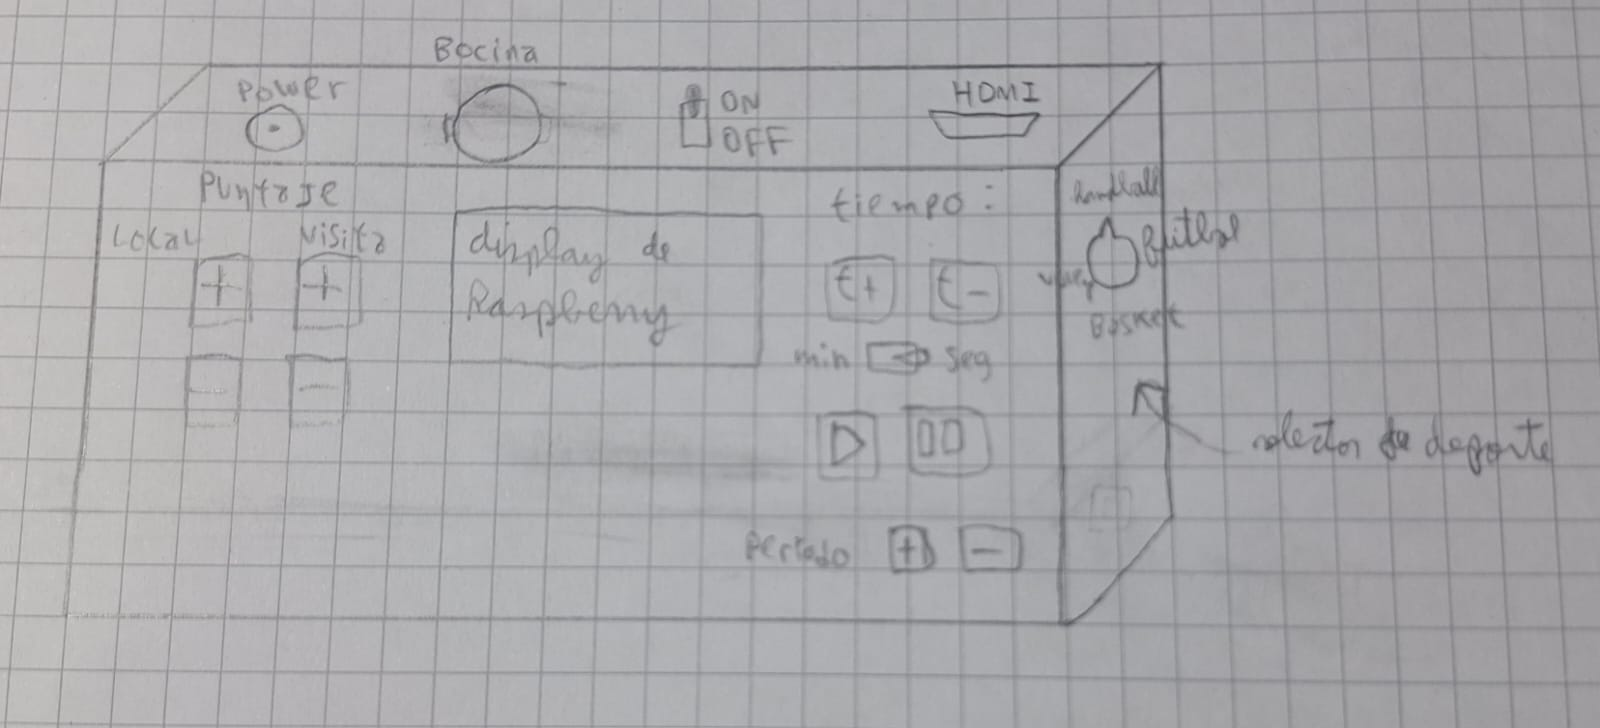 Bocina
Power
ON
OFF
HDMI
Puntaje
Local
Visita
+
+
-
-
display de
Raspberry
tiempo:
t+
t-
min
seg
Periodo
+
-
handball
Futbol
Basket
selector de deporte